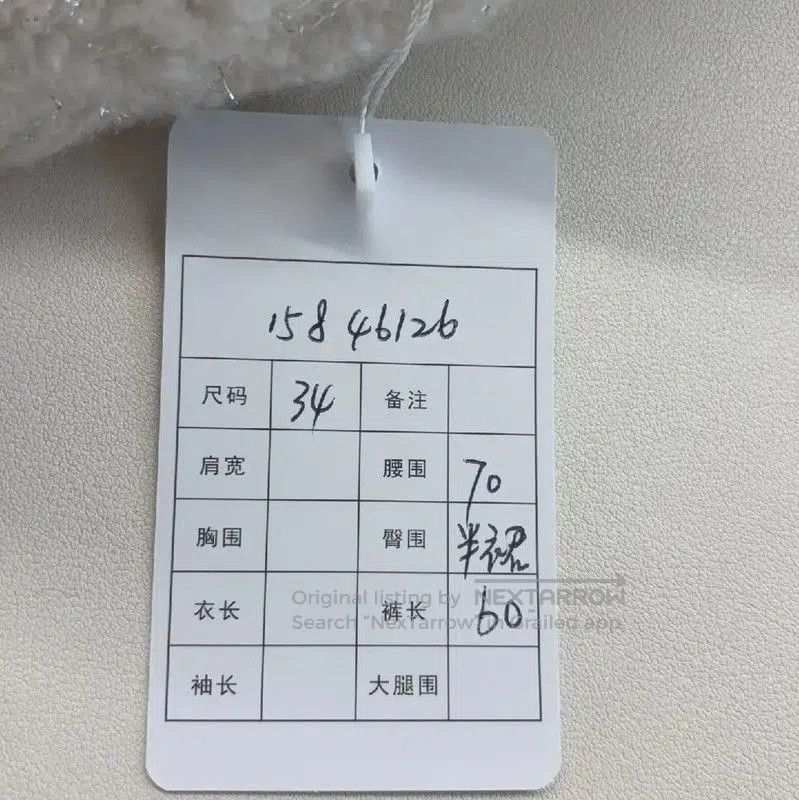 15846126
尺码 34 备注
肩宽 腰围 70
胸围 臀围 半裙
衣长 裤长 60
袖长 大腿围
Original listing by NEXTARROW
Search "NexTarrow" in Grailed app.